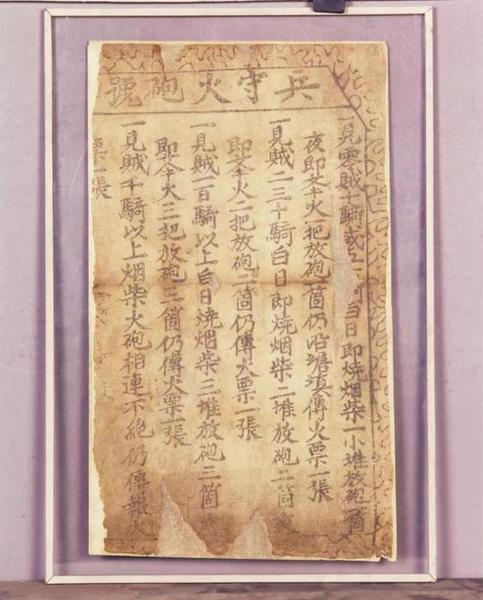 兵守火砲號
一見零賊十騎或五騎白日即燒烟柴一小堆放砲一箇
夜即举火一把放砲一箇仍沿塘傳火票一張
一見賊二三十騎白日即燒烟柴二堆放砲二箇夜
即举火二把放砲二箇仍傳火票一張
一見賊一百騎以上白日燒烟柴三堆放砲三箇
即举火三把放砲三箇仍傳火票一張
一見賊千騎以上烟柴火砲相連不絶仍傳報火
票一張